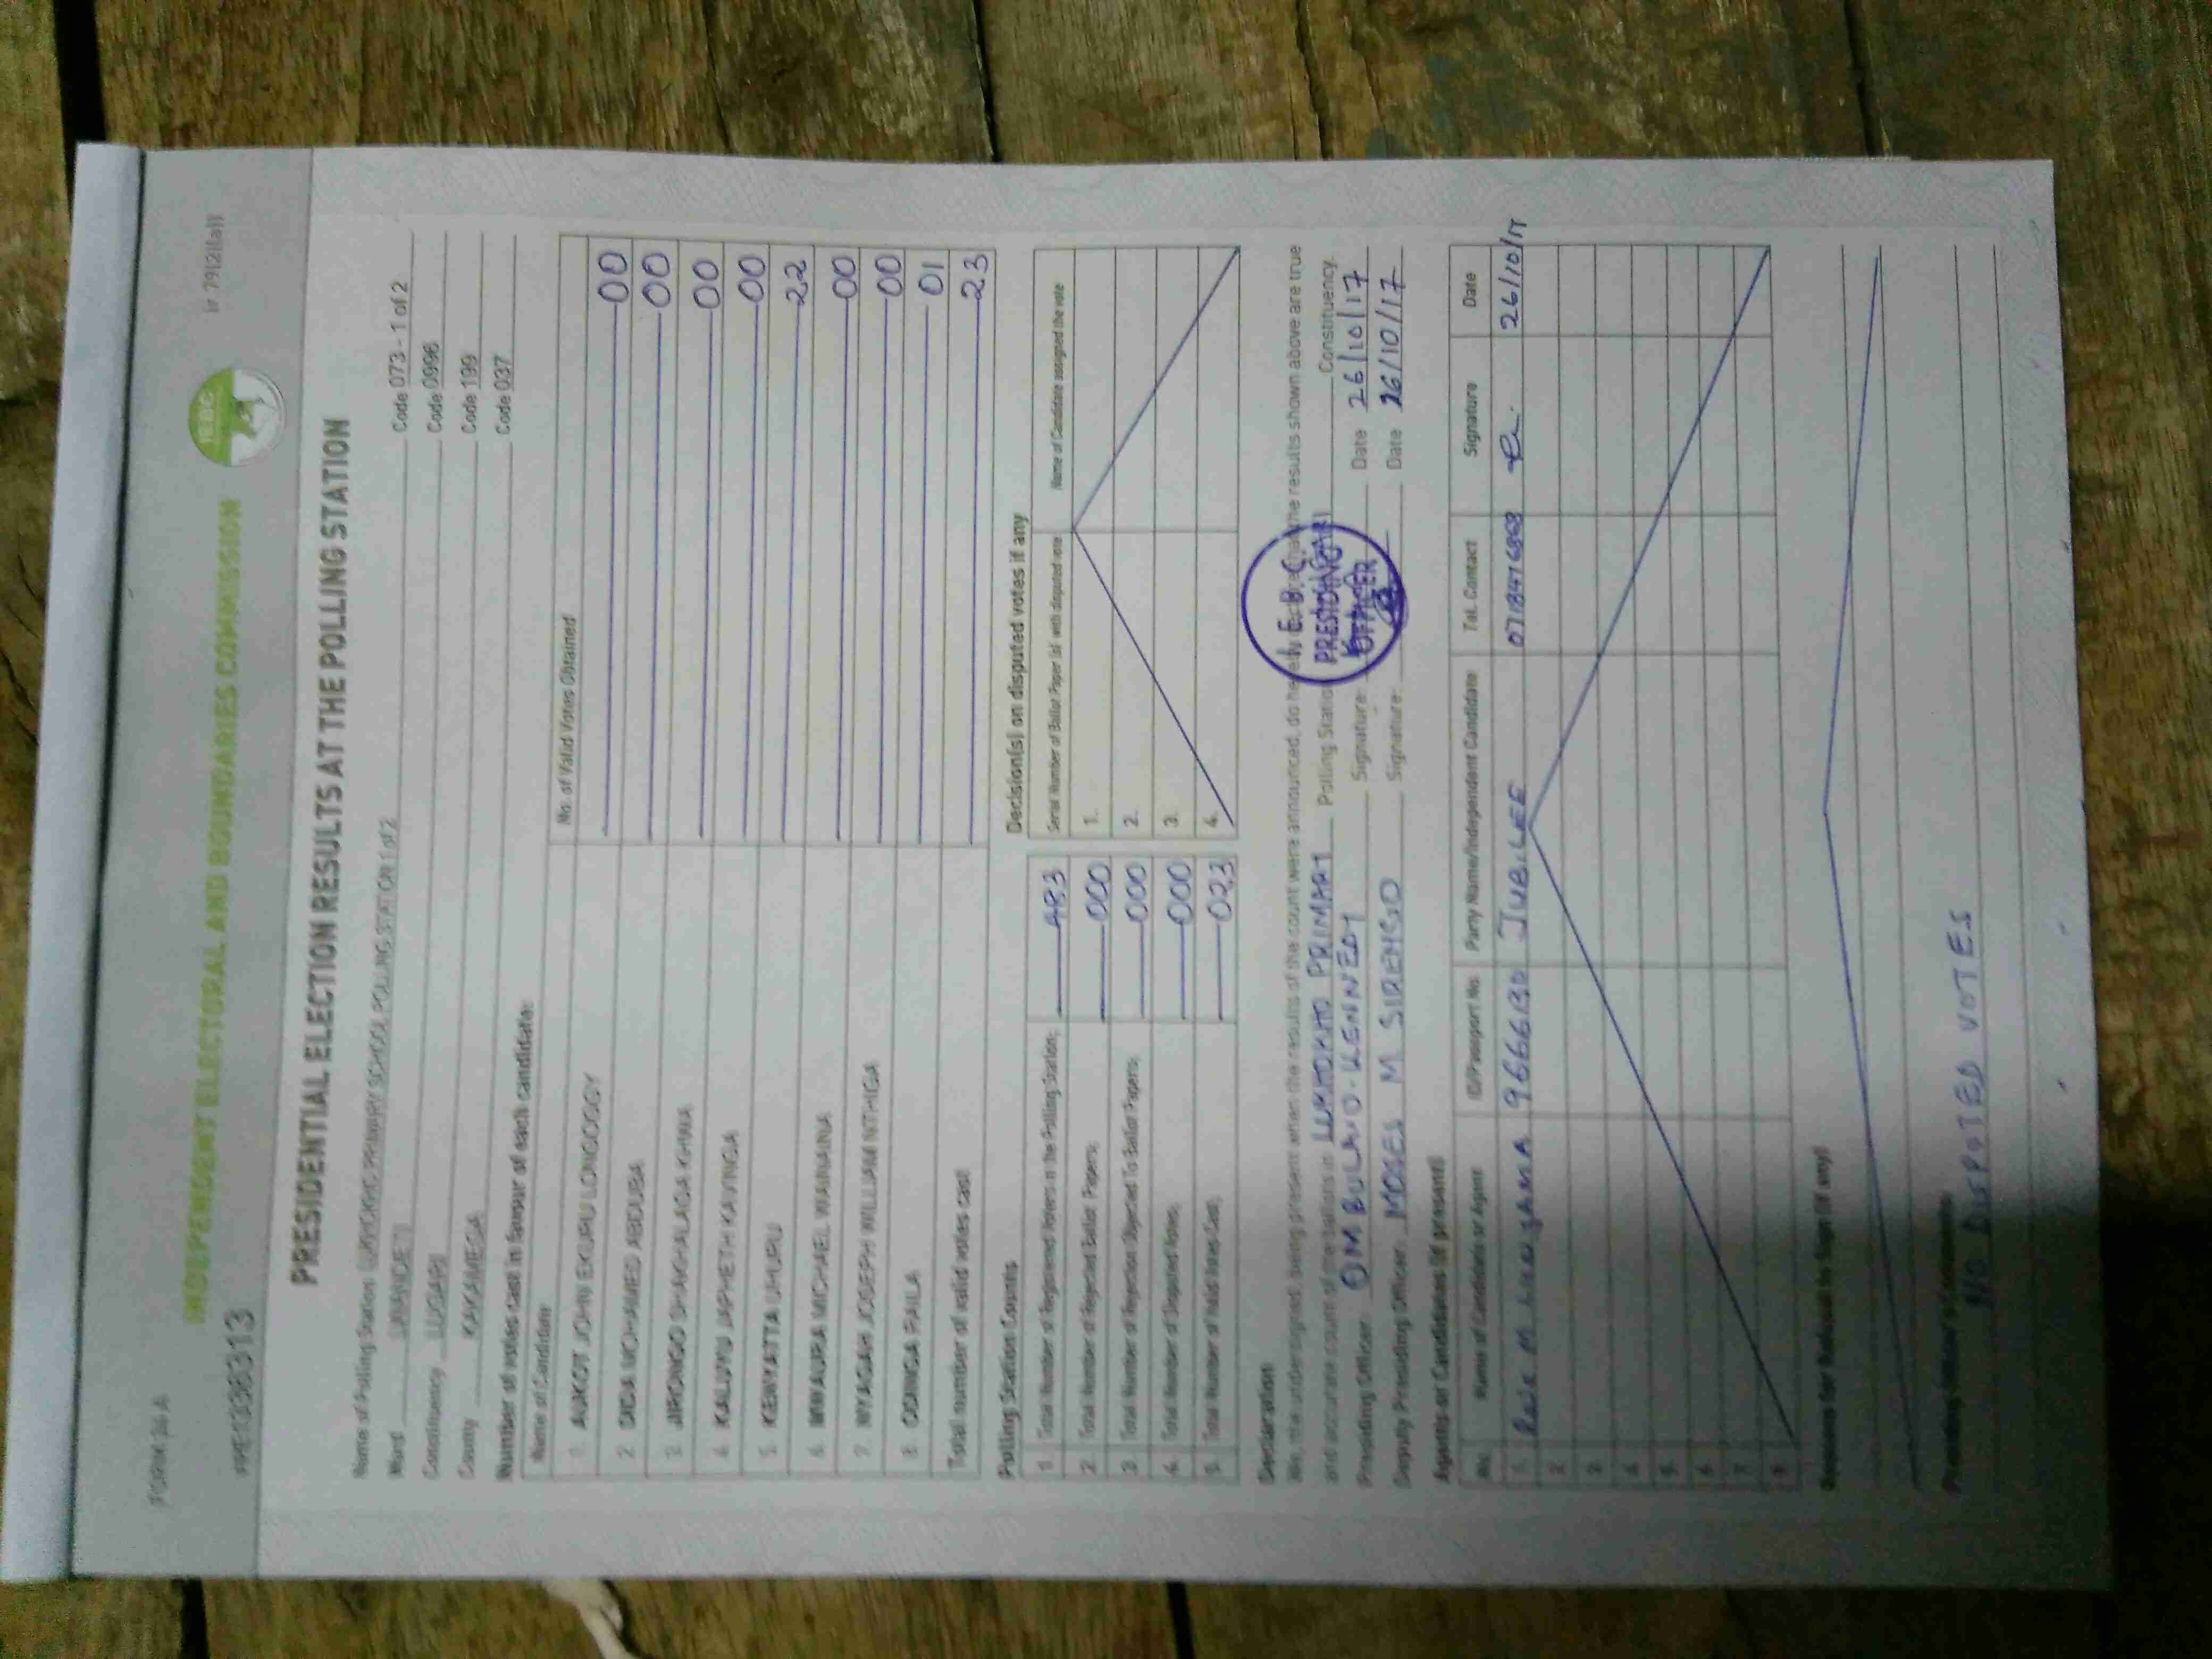 FORM 34A
Ir 79(2)(a)
INDEPENDENT ELECTORAL AND BOUNDARIES COMMISSION
IEBC
PRESIDENTIAL ELECTION RESULTS AT THE POLLING STATION
Name of Polling Station PRIMARY SCHOOL POLLING STATION 1 of 2 Code 073 - 1 of 2
Ward Code 0996
Constituency LUGARI Code 199
County KAKAMEGA Code 037
Number of votes cast in favour of each candidate:
Name of Candidate No. of Valid Votes Obtained
1. AUKOT JOHN EKURU LONGOGGY 00
2. DIDA MOHAMED ABDUBA 00
3. JIRONGO SHAKHALAGA KHWA 00
4. KALUYU JAPHETH KAVINGA 00
5. KENYATTA UHURU 22
6. MWAURA MICHAEL WAINAINA 00
7. NYAGAH JOSEPH WILLIAM NTHIGA 00
8. ODINGA RAILA 01
Total number of valid votes cast 23
Polling Station Counts
1. Total Number of Registered Voters in the Polling Station; 483
2. Total Number of Rejected Ballot Papers; 000
3. Total Number of Rejection Objected To Ballot Papers; 000
4. Total Number of Disputed Votes; 000
5. Total Number of Valid Votes Cast; 023
Decision(s) on disputed votes if any
Serial Number of Ballot Paper (s) with disputed vote Name of Candidate assigned the vote
1.
2.
3.
4.
Declaration
We, the undersigned, being present when the results of the count were announced, do hereby declare that the results shown above are true
and accurate count of the ballots in LUKHOKHO PRIMARY Polling Station Constituency.
Presiding Officer: OMBULA O. KENNEDY Signature: Date 26/10/17
Deputy Presiding Officer: MOSES M SIRENGO Signature: Date 26/10/17
I. E. B. C.
PRESIDING
OFFICER
Agents or Candidates (if present)
No. Name of Candidate or Agent ID/Passport No. Party Name/Independent Candidate Tel. Contact Signature Date
1. JUBILEE 26/10/17
2.
3.
4.
5.
6.
7.
8.
Reasons for Refusal to Sign (if any)
Presiding Officer's Comments:
NO DISPOTED VOTES